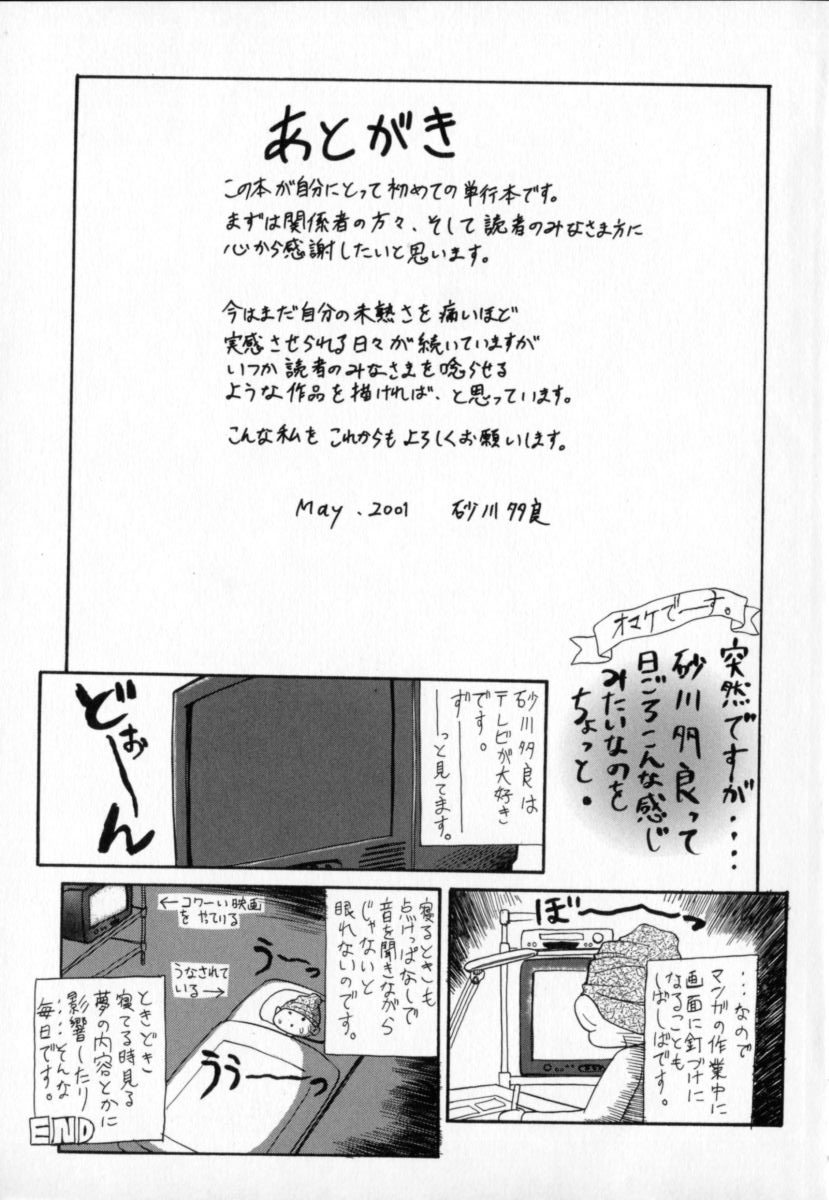 あとがき
この本が自分にとって初めての単行本です。
まずは関係者の方々、そして読者のみなさま方に
心から感謝したいと思います。
今はまだ自分の未熟さを痛いほど
実感させられる日々が続いていますが
いつか読者のみなさまを唸らせる
ような作品を描ければ、と思っています。
こんな私をこれからもよろしくお願いします。
May.2001 砂川多良
オマケでーす。
突然ですが‥‥
砂川多良って
日ごろこんな感じ
みたいなのを
ちょっと。
砂川多良は
テレビが大好き
です。
ずーー
ーっと見てます。
どぉーーん
…なので
マンガの作業中に
画面に釘づけに
なることも
しばしばです。
ぼーーーっ
寝るときも
点けっぱなしで
音を聞きながら
じゃないと
眠れないのです。
←コワーい映画
をやっている
うなされて
いる→
う〜〜っ
うぅ〜〜っ
ときどき
寝てる時見る
夢の内容とかに
影響したり
‥‥そんな
毎日です。
END